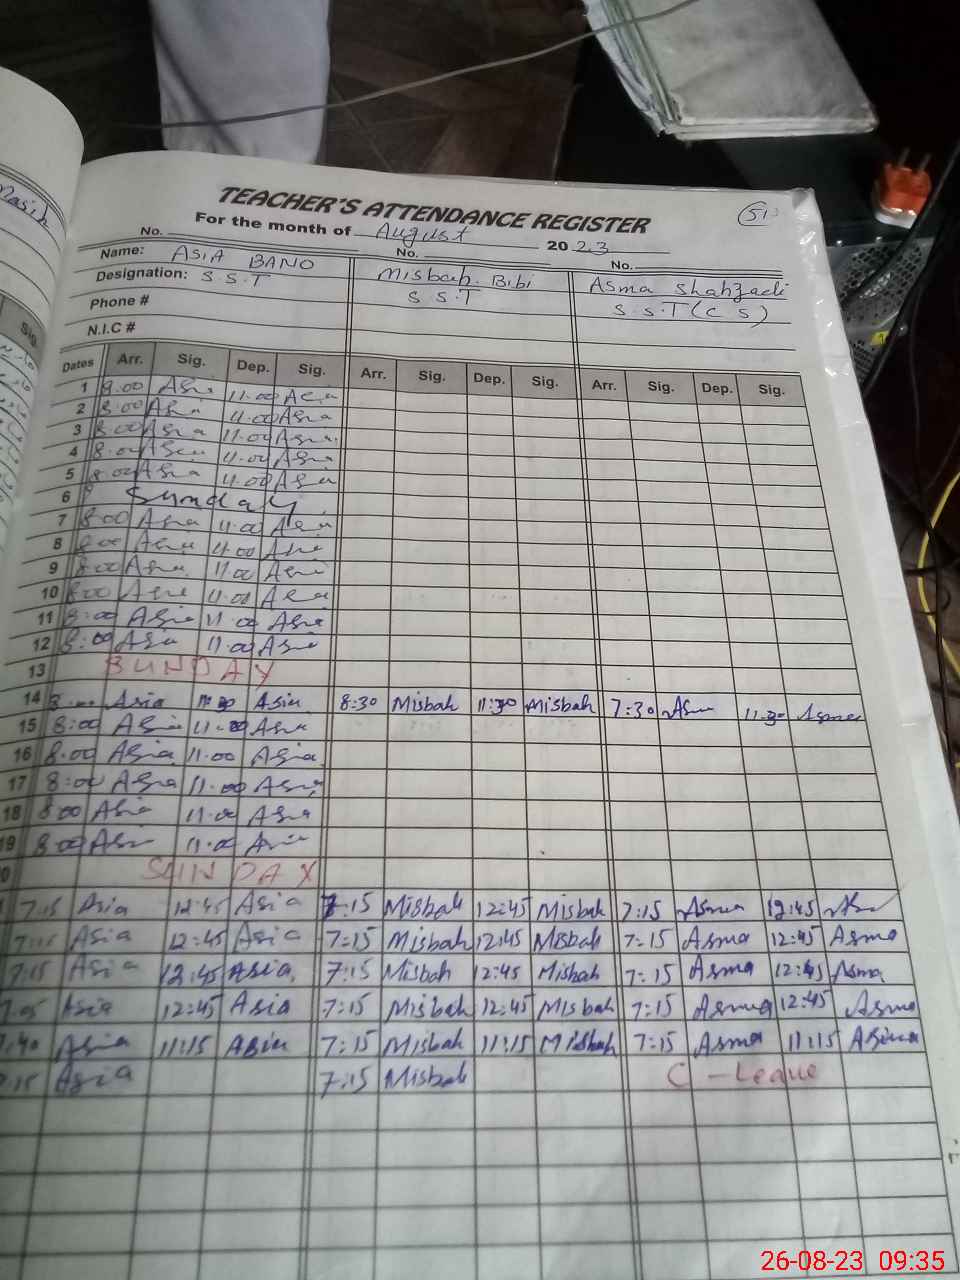 TEACHER'S ATTENDANCE REGISTER
51
For the month of August 2023
No. No. No.
Name: ASIA BANO Misbah Bibi Asma Shahzadi
Designation: S.S.T S.S.T S.S.T (C S)
Phone #
N.I.C #
Dates Arr. Sig. Dep. Sig. Arr. Sig. Dep. Sig. Arr. Sig. Dep. Sig.
1 8.00 Asia 11.00 Asia
2 8:00 Asia 11.00 Asia
3 8:00 Asia 11.00 Asia
4 8:00 Asia 11.00 Asia
5 8:00 Asia 11.00 Asia
6 Sunday
7 8:00 Asia 11:00 Asia
8 8:00 Asia 11.00 Asia
9 8:00 Asia 11.00 Asia
10 8:00 Asia 11.00 Asia
11 8:00 Asia 11.00 Asia
12 8:00 Asia 11.00 Asia
13 SUNDAY
14 Asia 11:30 Asia 8:30 Misbah 11:30 Misbah 7:30 Asma 11:30 Asma
15 8:00 Asia 11.00 Asia
16 8.00 Asia 11.00 Asia
17 8:00 Asia 11.00 Asia
18 8:00 Asia 11.00 Asia
19 8:00 Asia 11.00 Asia
0 SUNDAY
7:15 Asia 12:45 Asia 7:15 Misbah 12:45 Misbah 7:15 Asma 12:45
7:15 Asia 12:45 Asia 7:15 Misbah 12:45 Misbah 7:15 Asma 12:45 Asma
7:15 Asia 12:45 Asia 7:15 Misbah 12:45 Misbah 7:15 Asma 12:45 Asma
Asia 12:45 Asia 7:15 Misbah 12:45 Misbah 7:15 Asma 12:45 Asma
:40 Asia 11:15 Asia 7:15 Misbah 11:15 Misbah 7:15 Asma 11:15 Asma
:15 Asia 7:15 Misbah C - Leave
26-08-23 09:35